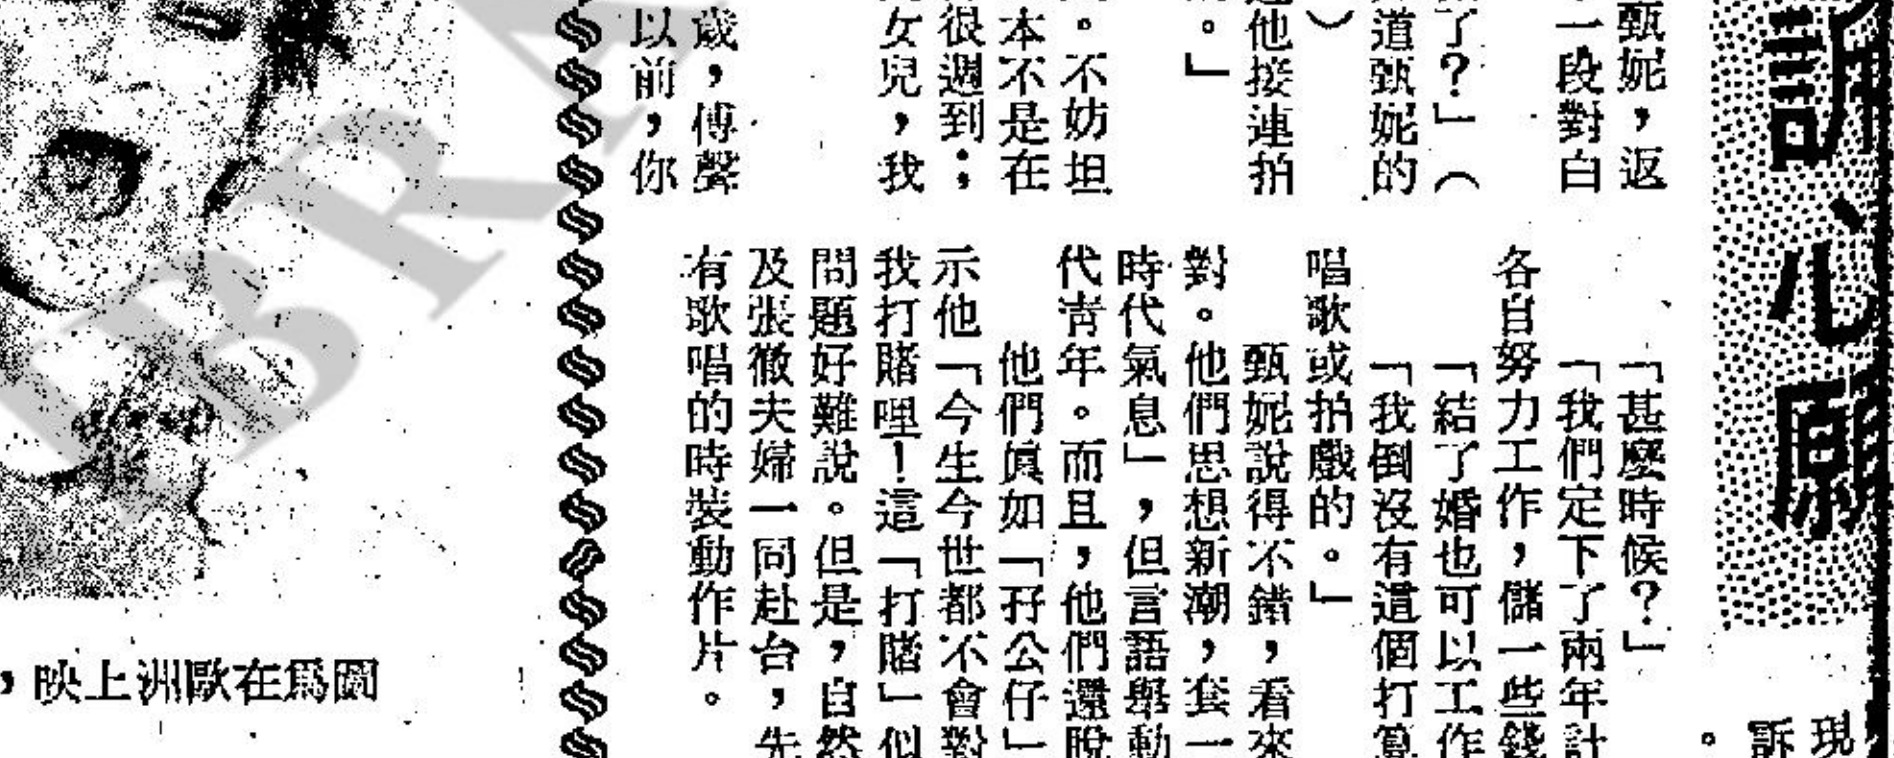 訴心願
甄妮，返
一段對白
了？」（
道甄妮的
）
他接連拍
。」
。不妨坦
本不是在
很週到：
女兒，我
歲，傅聲
以前，你
「甚麼時候？」
「我們定下了兩年計
各自努力工作，儲一些錢
「結了婚也可以工作
「我倒沒有這個打算
唱歌或拍戲的。」
甄妮說得不錯，看來
對。他們思想新潮，套一
時代氣息」，但言語舉動
代青年。而且，他們還脫
他們眞如「孖公仔」
示他「今生今世都不會對
我打賭哩！這「打賭」似
問題好難說。但是，自然
及張徹夫婦一同赴台，先
有歌唱的時裝動作片。
現
訴
。
圖爲在歐洲上映，
BRA